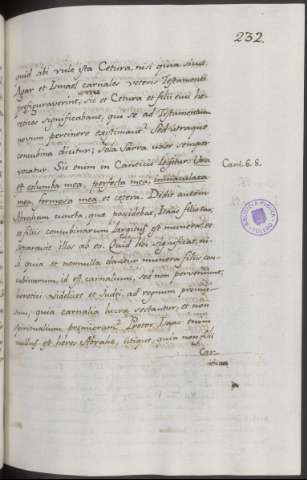 232.
quid sibi vult ista Cetura, nisi quia sicut
Agar et Ismael carnales veteris Testamenti
praefiguraverint, sic et Cetura et filii eius he-
reticos significabant, qui se ad Testamentum
novum pertinere existimant? Sed utraque
concubina dicitur; sola Sarra uxor semper
vocatur. Sic enim in Canticis legitur: Una
Cant. 6. 8.
est columba mea, perfecta mea, immaculata
mea, formosa mea, et cetera. Dedit autem
Abraham cuncta, quae possidebat, Isaac filio suo,
et filiis concubinarum largitus est munera, et
separavit illos ab eo. Quid hic significat, ni-
si quia et nonnulla dantur munera filiis con-
cubinarum, id est, carnalium, sed non perveniunt,
heretici videlicet et Judei, ad regnum promis-
sum, quia carnalia lucra sectantur, et non
spiritualium Praeter Isaac enim
nullus est heres Abrahe, itaque, quia non filii
Car-
BIBLIOTECA PUBLICA
TOLEDO